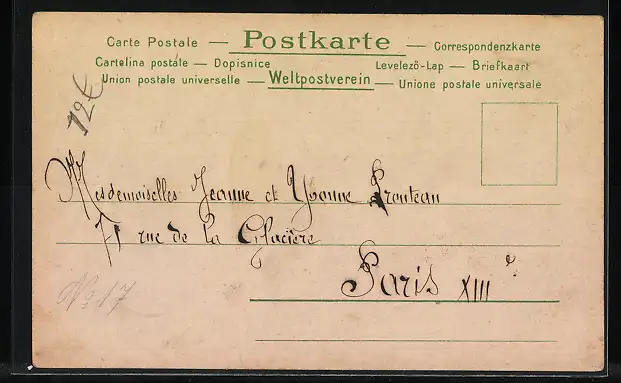 Carte Postale — Postkarte — Correspondenzkarte
Cartolina postale — Dopisnice Levelező-Lap — Briefkaart
Union postale universelle — Weltpostverein — Unione postale universale
12€
Mesdemoiselles Jeanne et Yvonne
71 rue de la Glacière
Paris XIIIe
No 17